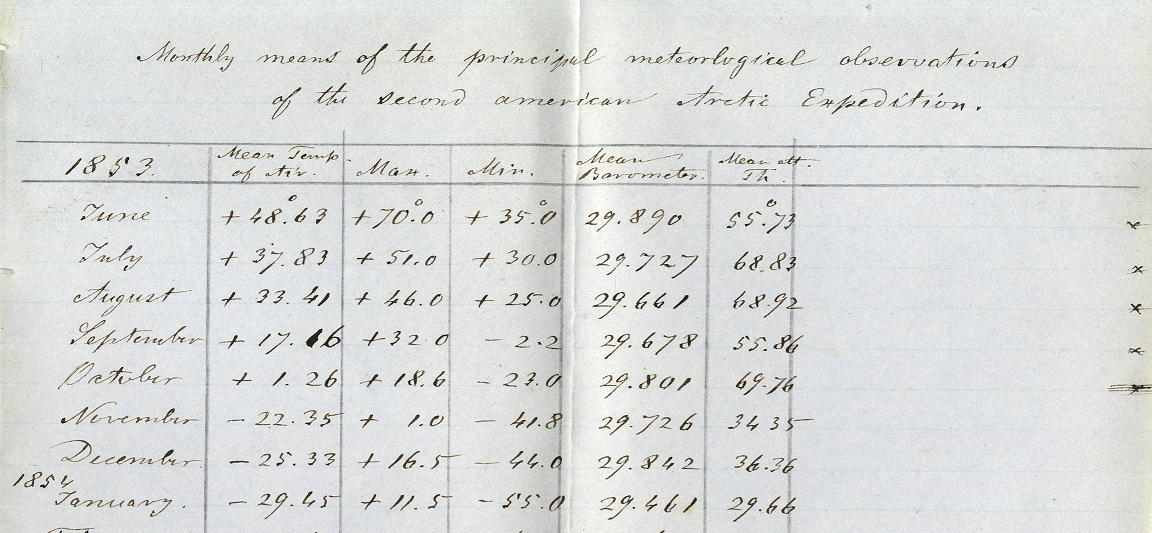 Monthly means of the principal meteorlogical observations
of the second american Arctic Expedition.
1853. Mean Temp. of Air. Max. Min. Mean Barometer. Mean att. Th.
June +48°.63 +70°.0 +35°.0 29.890 55°.73 x
July +37.83 +51.0 +30.0 29.727 68.83 x
August +33.41 +46.0 +25.0 29.661 68.92 x
September +17.16 +32 0 -2.2 29.678 55.86 x
October +1.26 +18.6 -23.0 29.801 69.76 x
November -22.35 +1.0 -41.8 29.726 34 35
December. -25.33 +16.5 -44.0 29.842 36.36
1854
January. -29.45 +11.5 -55.0 29.461 29.66